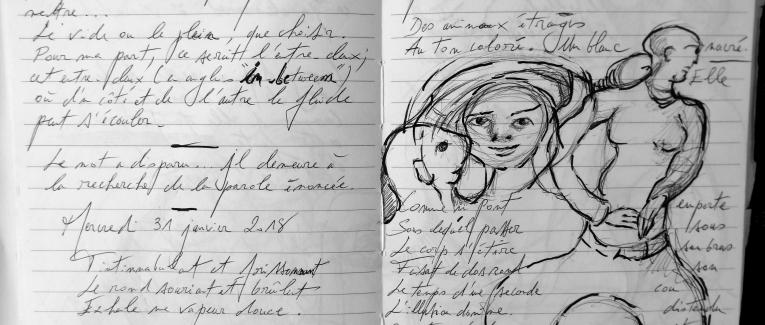 mettre...
Le vide ou le plein, que choisir.
Pour ma part, ce serait l'entre-deux ;
cet entre-deux (en anglais "in-between")
où d'un côté et de l'autre le fluide
peut s'écouler.
Le mot a disparu... Il demeure à
la recherche de la parole énoncée.
Mercredi 31 janvier 2018
Tintinnabulant et
Le rond souriant et brûlant
Exhale une vapeur douce.
Des animaux étranges
Au ton coloré. Un blanc nacré.
Elle
Comme un pont
Sous lequel passer
Le corps s'étire
Le temps d'une seconde
L'illusion domine.
emporte
sous
son bras
son
cou
distendu